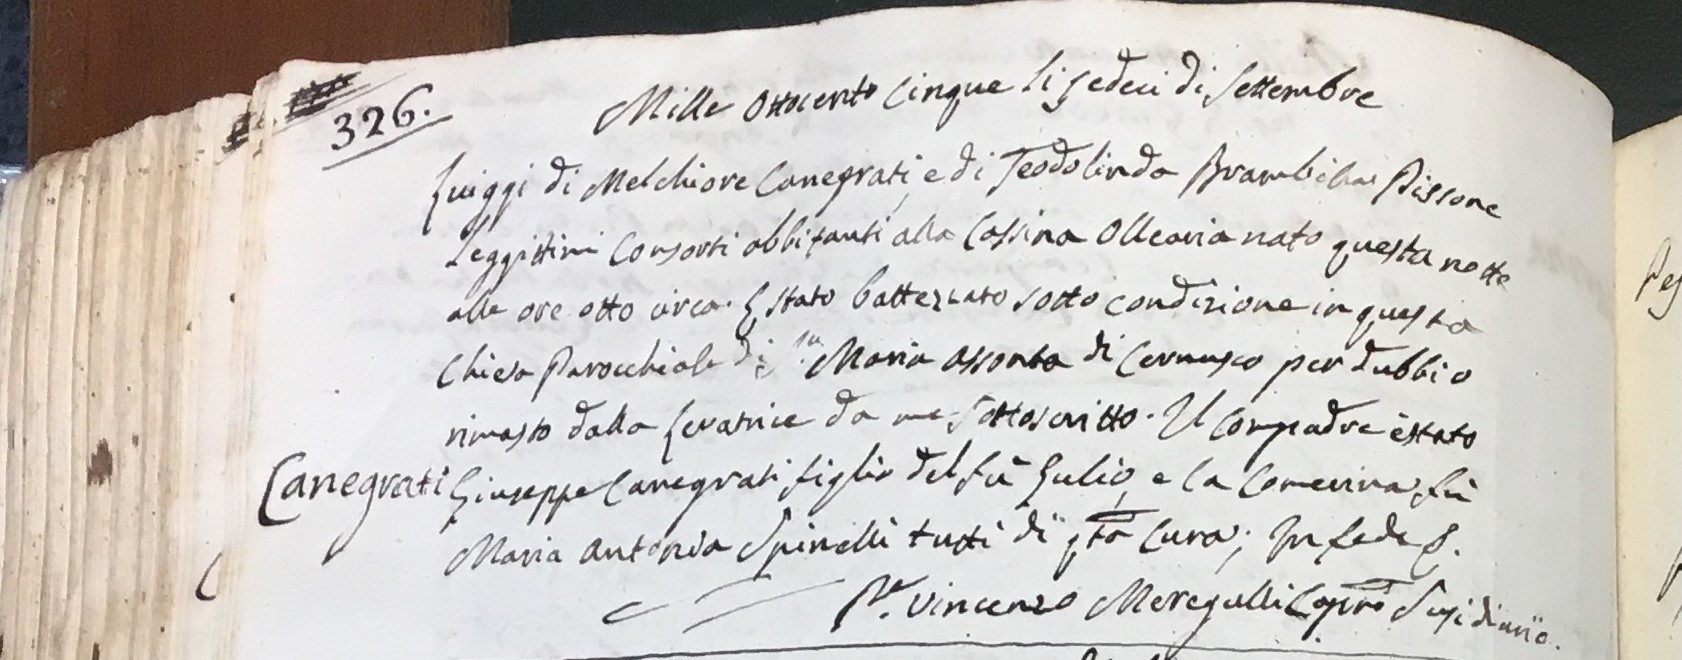 326.
Mille Ottocento Cinque li sedeci di Settembre
Luiggi di Melchiore Canegrati e di Teodolinda Brambilla Pissone
Leggittimi Consorti abbitanti alla Cassina Ollearia nato questa notte
alle ore otto circa. È stato battezzato sotto condizione in questa
Chiesa Parocchiale di S.ta Maria Assonta di Cernusco per dubbio
rimasto dalla Levatrice da me Sottoscritto. Il Compadre è stato
Canegrati
Giuseppe Canegrati figlio del fù Giulio, e la Comerina fù
Maria Antonia Spinelli tutti di qta Cura; In fede &.
Pte. Vincenzo Meregalli Sussidiario.